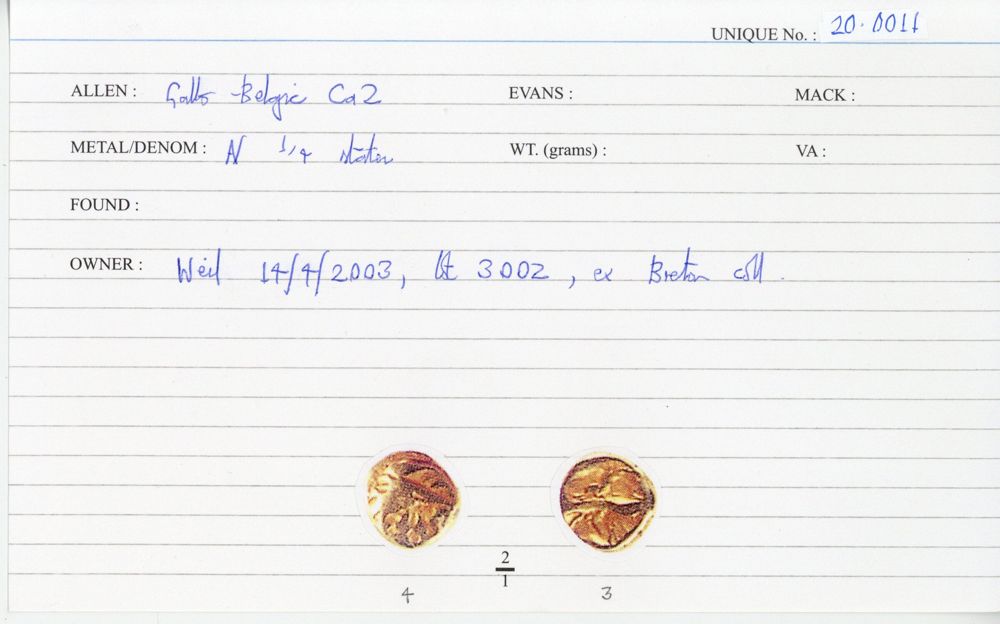 UNIQUE No. : 20.0011
ALLEN : Gallo-Belgic Ca2 EVANS : MACK :
METAL/DENOM : AV 1/4 stater WT. (grams) : VA :
FOUND :
OWNER : Weil 14/4/2003, lot 3002, ex Breton coll.
2
1
4 3